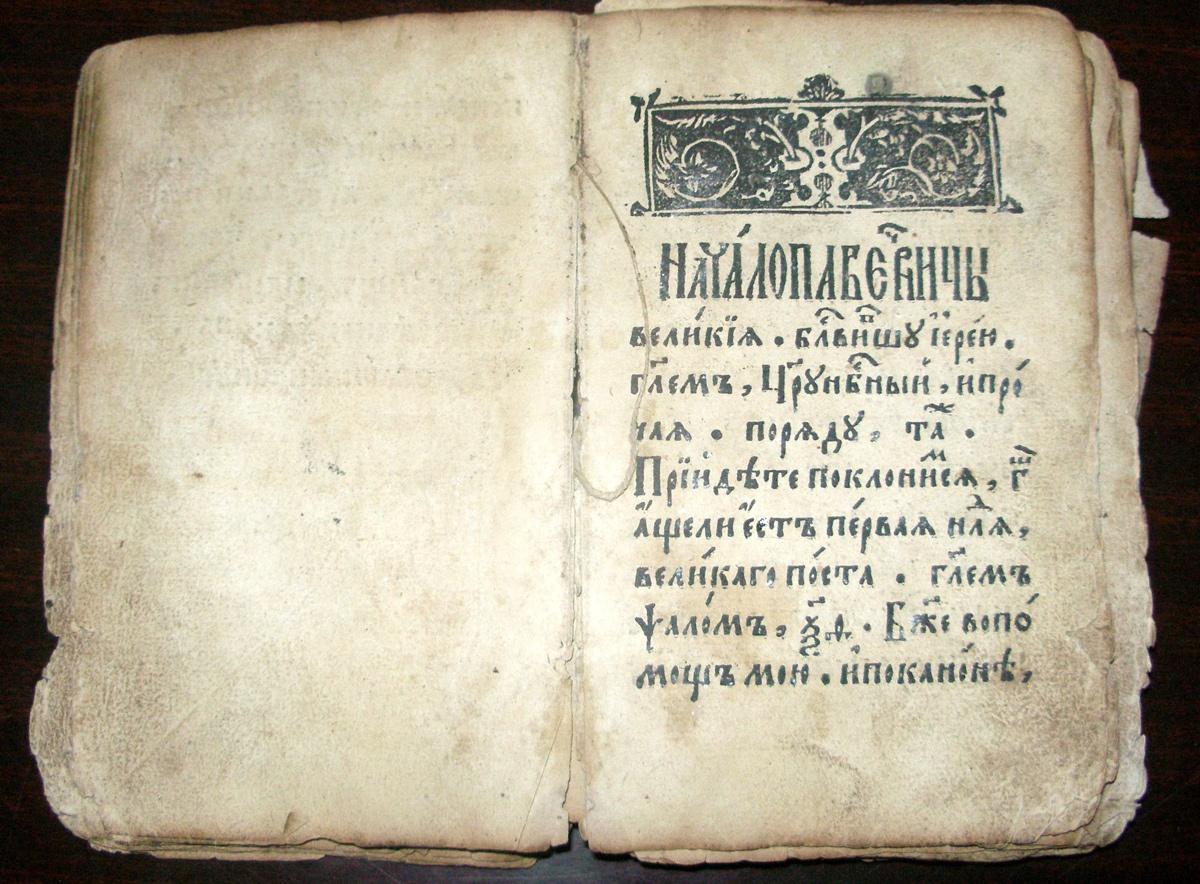 НАЧА́ЛОПАВЕЧЕ́РНИЧЬІ
вели́кїѧ . бл҃ви́вшꙋ їере́ю .
гл҃емъ , Цр҃ꙋнб҃ный , ипро́
чаѧ . порѧдꙋ , та́ж .
Прїидѣ́те поклони́мсѧ , г҃щи
а҆щели е҆стъ пе́рваѧ нд҃лѧ ,
вели́каго по́ста . гл҃емъ
ѱало́мъ , ѯ҃ѳ . Бж҃е вопо́
мощъ мою̀ . ипокано́нѣ ,